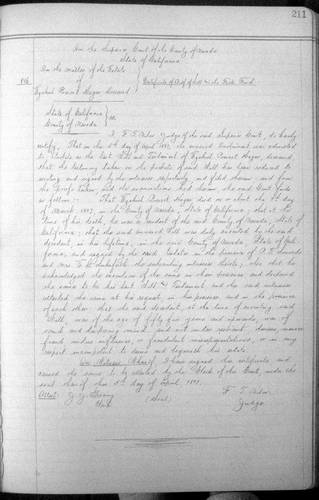 211
In the Superior Court of the County of Nevada
State of California
In the matter of the Estate
of
Certificate of Proof of Will and the Facts Found
Ezekiel Deceased
State of California
County of Nevada ss
I, F. T. Nilon Judge of the said Superior Court, do hereby
certify, That on the day of April 1897, the annexed Instrument was admitted
to Probate as the last Will and Testament of Ezekiel deceased
that the
and from
the Proof taken, and the examination had therein, the said Court finds
as follows: That Ezekiel died on or about the day
of March 1897, in the County of Nevada, State of California; that at the
time of his death, he was a resident of the said County of Nevada, State of
California; that the said annexed Will was duly executed by the said
decedent, in his lifetime, in the said County of Nevada State of Cali-
fornia, and signed by the said testator in the presence of
and the subscribing witnesses thereto; also that he
acknowledged the execution of the same in their presence and declared
the same to be his last Will and Testament, and the said witnesses
attested the same at his request, in his presence and in the presence
of each other: that the said decedent, at the time of executing said
Will, was of the age of fifty five years and upwards, was of
sound and disposing mind, and not under restraint, duress, menace
fraud undue influence, or fraudulent misrepresentations, or in any
respect incompetent to devise and bequeath his estate.
In Witness Whereof I have signed this certificate and
caused the same to be attested by the Clerk of the Court, under the
seal thereof this day of April 1897.
(Attest) J. Greany (Seal) F. T. Nilon
Clerk Judge